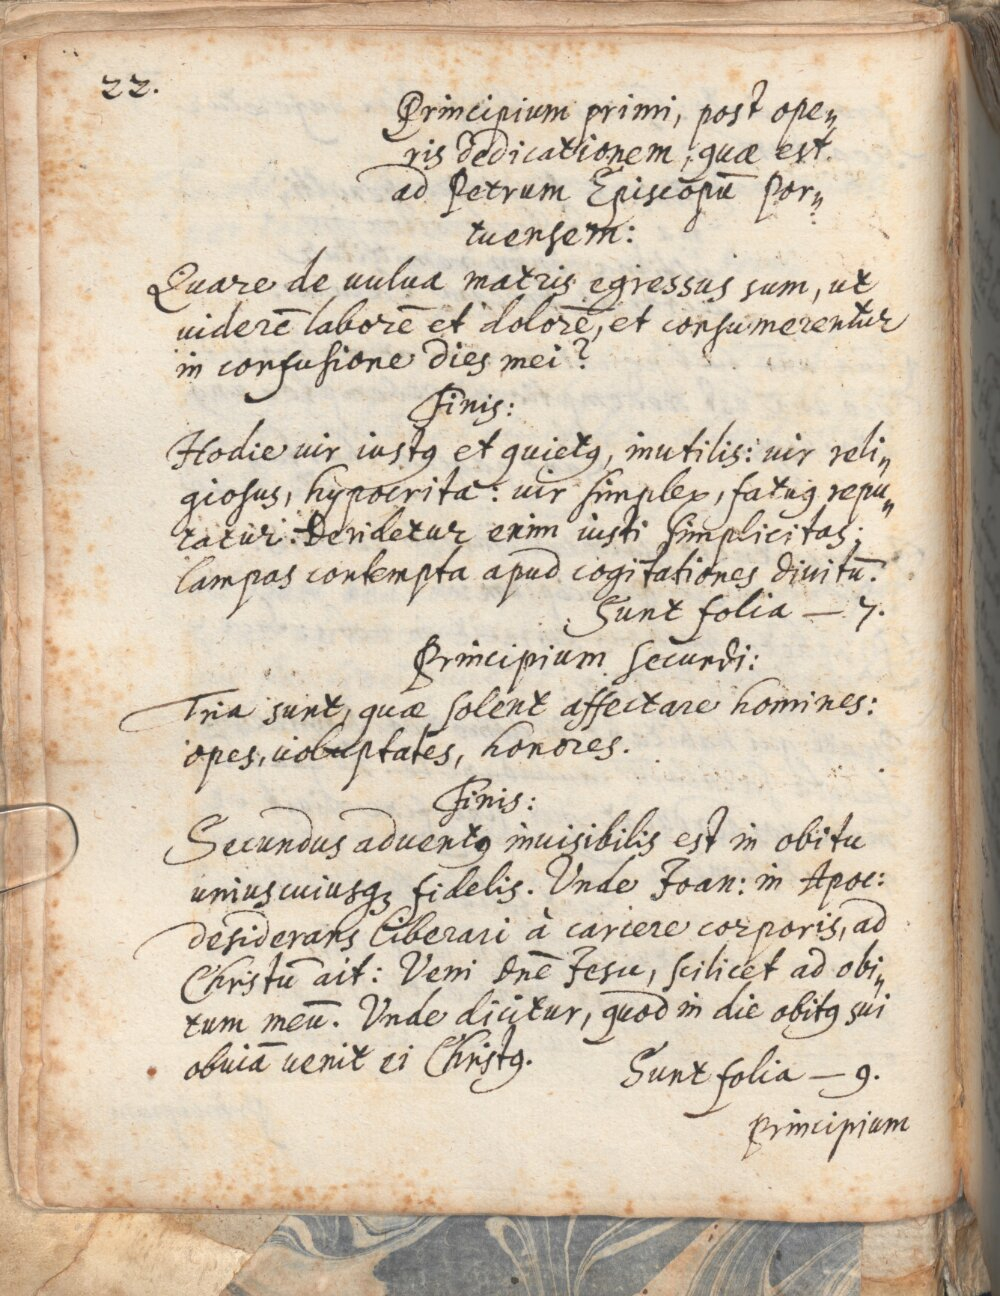 22.
Principium primi, post ope„
ris dedicationem, quæ est
ad Petrum Episcopū Por„
tuensem:
Quare de uulua matris egressus sum, ut
uiderē laborē et dolorē, et consumerentur
in confusione dies mei?
Finis:
Hodie uir iustꝰ et quietꝰ, inutilis: uir reli„
giosus, hypocrita: uir simplex, fatuꝰ repu„
tatur. Deridetur enim iusti simplicitas;
lampas contempta apud cogitationes diuitū.
Sunt folia — 7.
Principium secundi:
Tria sunt, quæ solent affectare homines:
opes, uoluptates, honores.
Finis:
Secundus aduentꝰ inuisibilis est in obitu
uniuscuiusqꝫ fidelis. Vnde Joan: in Apoc:
desiderans liberari à carcere corporis, ad
Christū ait: Veni Dnē Jesu, scilicet ad obi„
tum meū. Vnde dicitur, quod in die obitꝰ sui
obuiā uenit ei Christꝰ.
Sunt folia — 9.
Principium